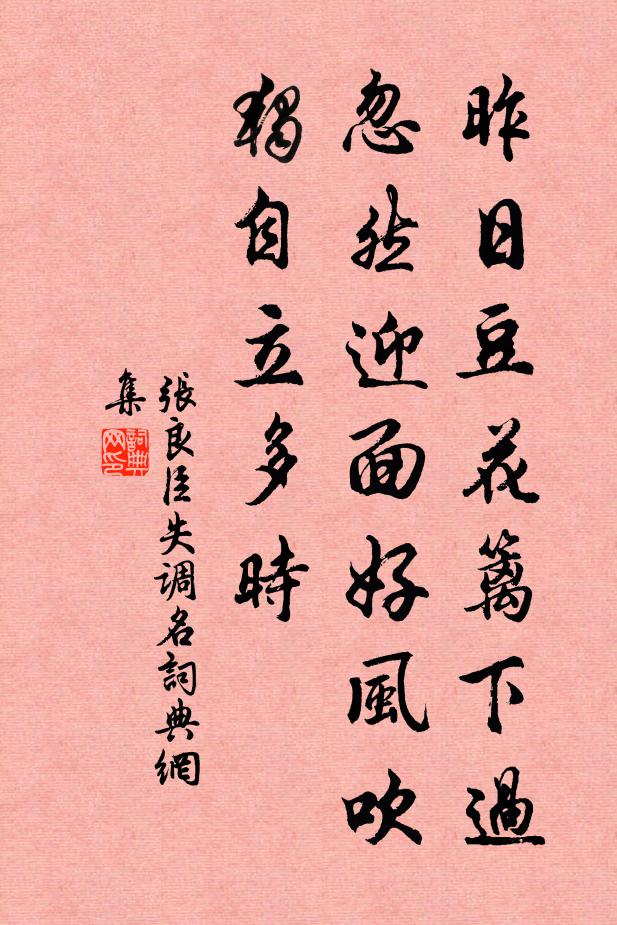 昨日豆花篱下過
忽然迎面好風吹
獨自立多時
張良臣失调名詞典網
集
詞典
网印